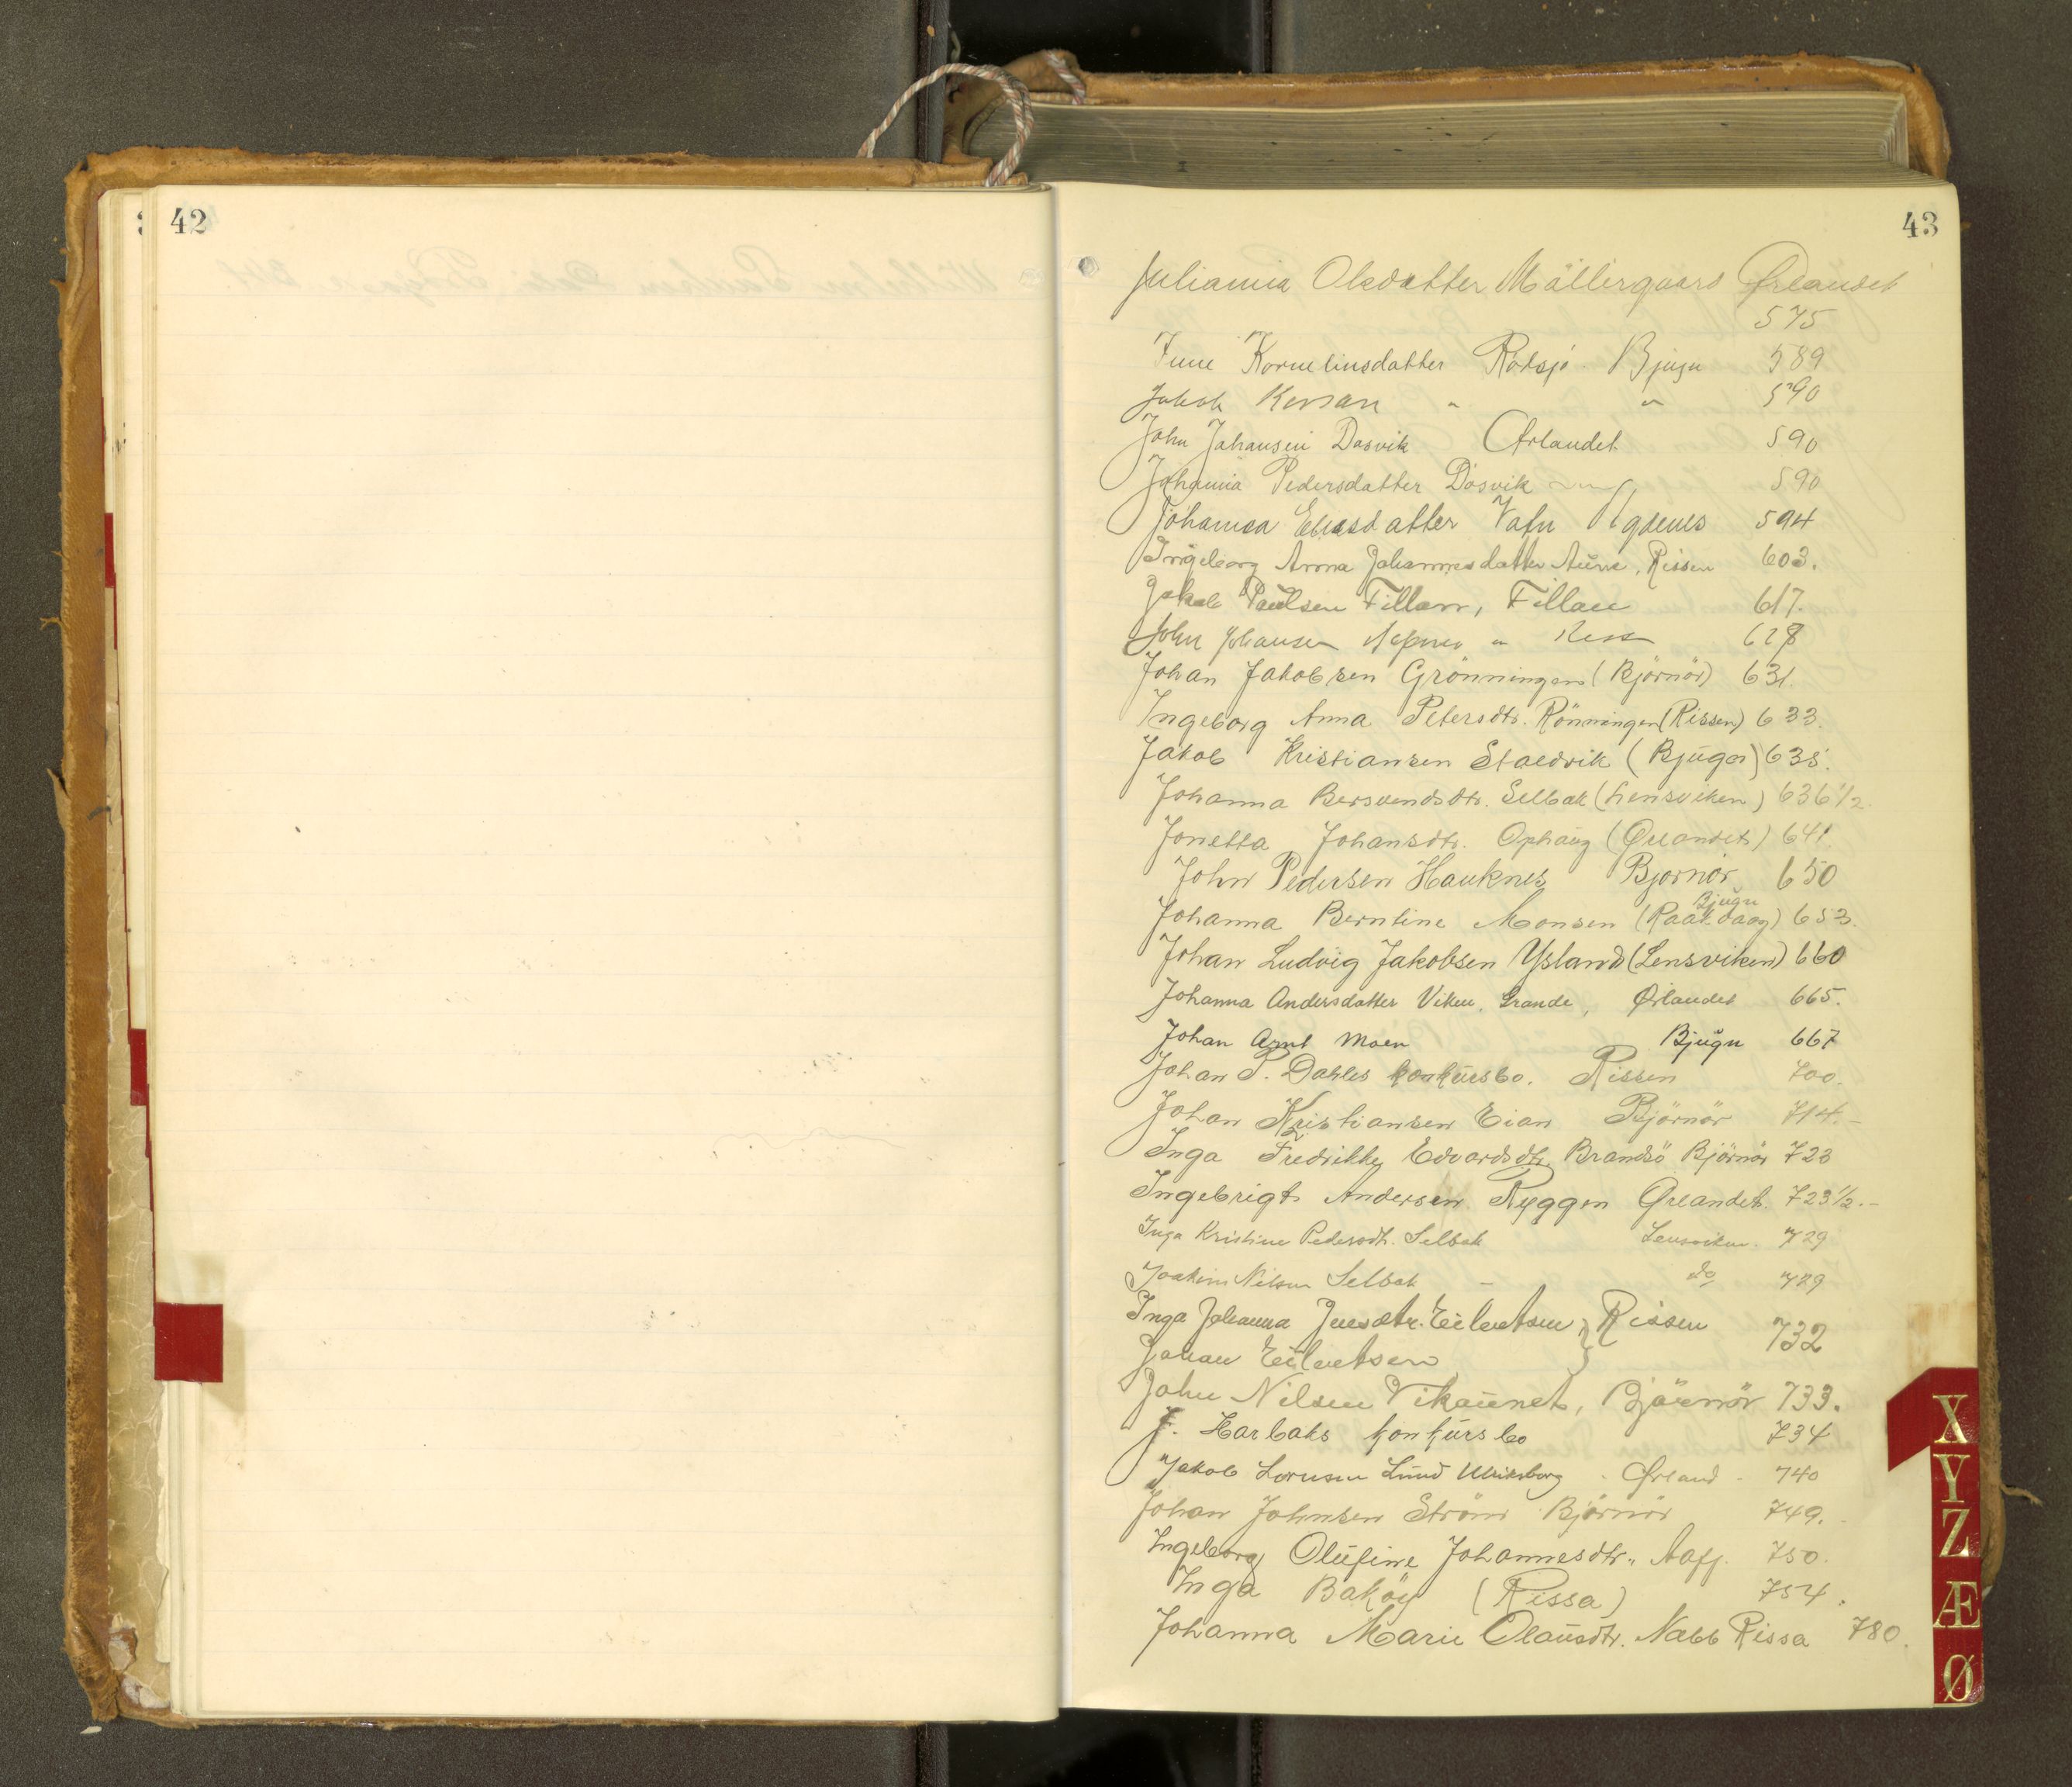 42
43
Juliania Olesdatter Möllergaard Ørlandet
575
Kornelinsdatter Rötsjö Bjugn 589
Jakob " " 590
John Johansen Dösvik Ørlandet 590
Johanna Pedersdatter Dösvik 590
Johanna Eliasdatter Vafn Agdenes 594
Ingeborg Anna Johannesdatter Aune, Rissen 603.
Jakob Paulsen Fillan, Fillan 617.
John Johansen " 628
Johan Jakobsen Grönningen (Björnör) 631.
Ingeborg Anna Petersdtr. Rönningen (Rissen) 633.
Jakob Kristiansen Staldvik (Bjugn) 635.
Johanna Bersvendsdtr. Selbak (Lensviken) 636 1/2.
Jonetta Johansdtr. Ophaug (Ørlandet) 641.
John Pedersen Hauknes Bjørnør 650
Bjugn
Johanna Berntine Monsen (Raak.vaag) 653.
Johan Ludvig Jakobsen Ysland (Lensviken) 660
Johanna Andersdatter Viken, Grande, Ørlandet 665.
Johan Arnt Moen Bjugn 667
Johan P. Dahles konkursbo. Rissen 700.
Johan Kristiansen Eian Björnör 714.-
Inga Fredrikke Edvardsdtr. Brandsö Björnör 723
Ingebrigt Andersen Ryggen Ørlandet. 723 1/2.-
Inga Kristine Pedersdtr. Selbak Lensviken. 729
Joakim Nilsen Selbak - do 729
Inga Johanna Jensdtr. Eilertsen } Rissen 732
Johan Eilertsen
John Nilsen Vikaunet, Bjørnør 733.
J. Harbaks konkursbo 734
Jakob Lornsen Lund Ulriksborg - Ørland - 740
Johan Johnsen Ström Björnör 749.
Ingeborg Olufine Johannesdtr., Aafj. 750.
Inga Baköy (Rissa) 754.
Johanna Marie Olausdtr. Nabb Rissa 780.
X
Y
Z
Æ
Ø